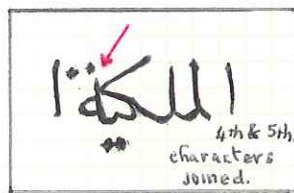 الملكية ا
4th & 5th
characters
joined.